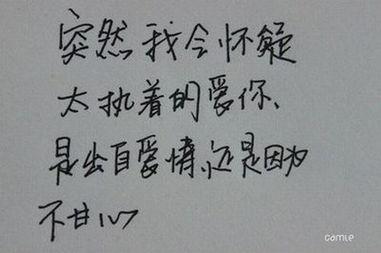 突然我会怀疑
太执着的爱你、
是出自爱情,还是因为
不甘心
camle